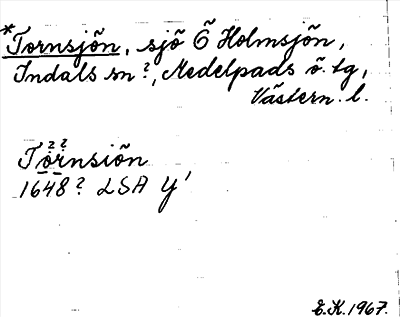 *Tornsjön, sjö Ö Holmsjön,
Indals sn?, Medelpads ö. tg,
Västern. l.
? ?
Törnsiön
1648? LSA Y'
E.K. 1967.